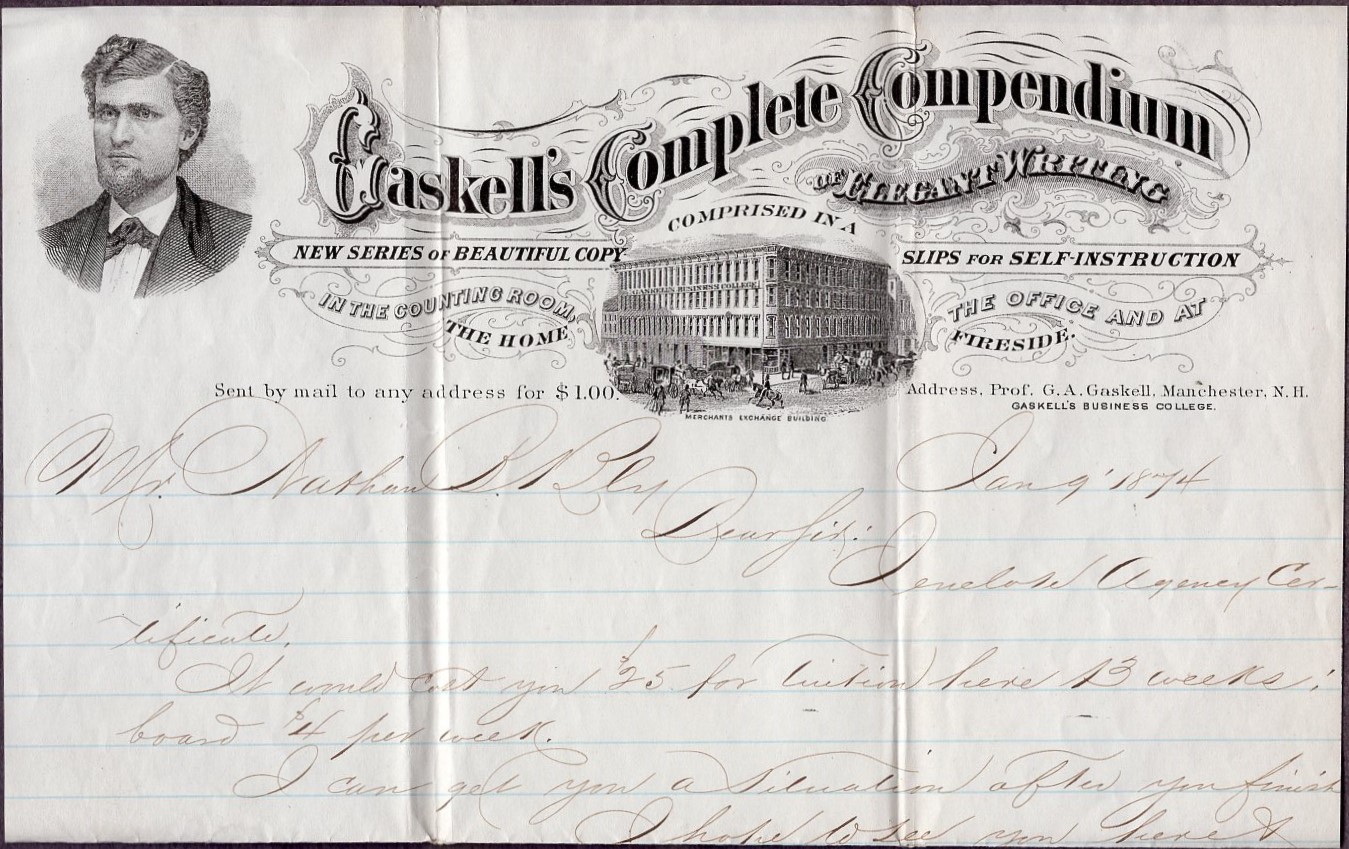 Gaskell's Complete Compendium
OF ELEGANT WRITING
COMPRISED IN A
NEW SERIES OF BEAUTIFUL COPY SLIPS FOR SELF-INSTRUCTION
IN THE COUNTING ROOM, THE OFFICE AND AT
THE HOME FIRESIDE.
GASKELL'S BUSINESS COLLEGE
Sent by mail to any address for $1.00. Address, Prof. G. A. Gaskell, Manchester, N. H.
GASKELL'S BUSINESS COLLEGE.
MERCHANTS EXCHANGE BUILDING
Mr. Nathan B. Bly Jan 9' 1874
Dear Sir:
I enclose Agency Cer-
tificate.
It would cost you $25 for tuition here 13 weeks;
board $4 per week.
I can get you a situation after you finish
I hope to see you here &